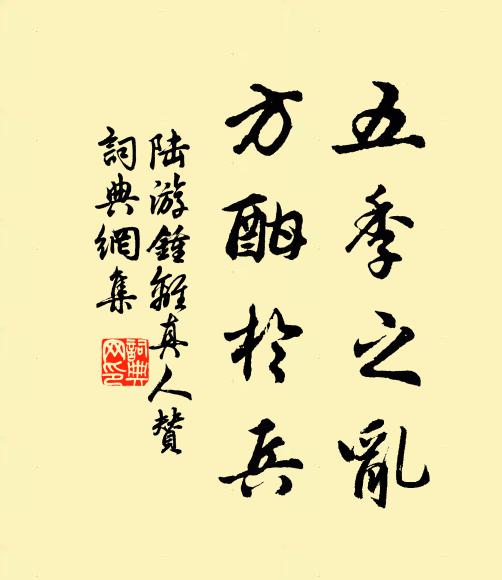 五季之亂
方酣於兵
陸游鍾離真人贊
詞典網集
詞典網印